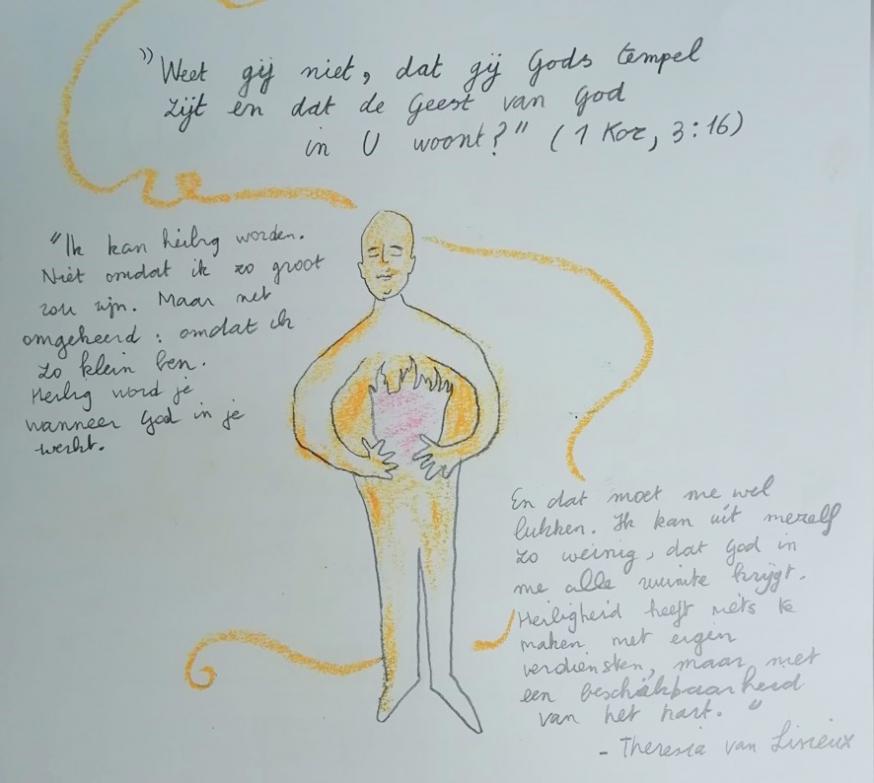 "Weet gij niet, dat gij Gods tempel
zijt en dat de Geest van God
in U woont?" (1 Kor, 3:16)
"Ik kan heilig worden.
Niet omdat ik zo groot
zou zijn. Maar net
omgekeerd: omdat ik
zo klein ben.
Heilig word je
wanneer God in je
werkt.
En dat moet me wel
lukken. Ik kan uit mezelf
zo weinig, dat God in
me alle ruimte krijgt.
Heiligheid heeft niets te
maken met eigen
verdiensten, maar met
een beschikbaarheid
van het hart."
- Theresia van Lisieux